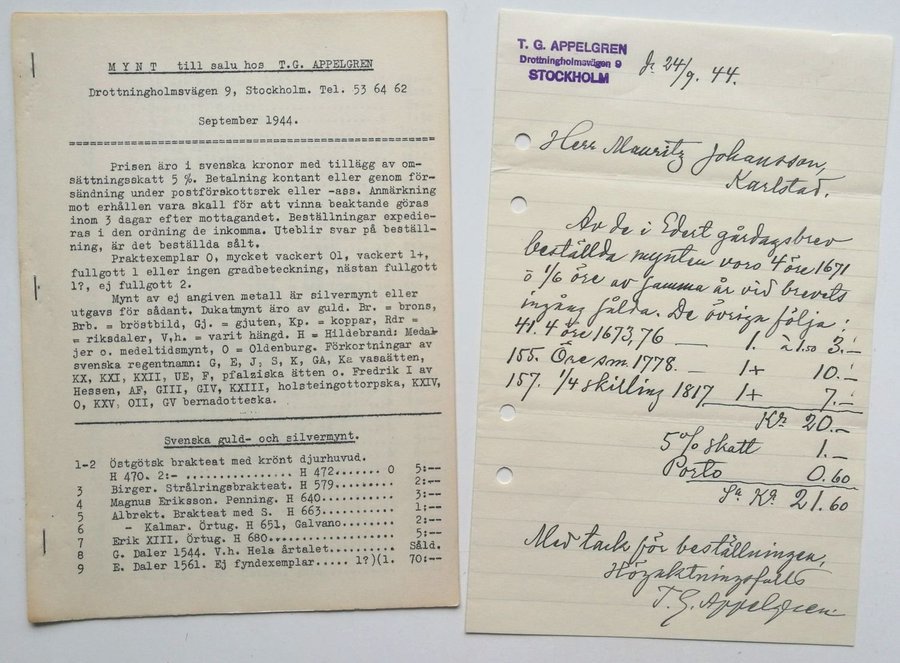 M Y N T till salu hos T.G. APPELGREN
Drottningholmsvägen 9, Stockholm. Tel. 53 64 62
September 1944.
Prisen äro i svenska kronor med tillägg av om-
sättningsskatt 5 %. Betalning kontant eller genom för-
sändning under postförskottsrek eller -ass. Anmärkning
mot erhållen vara skall för att vinna beaktande göras
inom 3 dagar efter mottagandet. Beställningar expedie-
ras i den ordning de inkomma. Uteblir svar på beställ-
ning, är det beställda sålt.
Praktexemplar 0, mycket vackert 01, vackert 1+,
fullgott 1 eller ingen gradbeteckning, nästan fullgott
1?, ej fullgott 2.
Mynt av ej angiven metall är silvermynt eller
utgavs för sådant. Dukatmynt äro av guld. Br. = brons,
Brb. = bröstbild, Gj. = gjuten, Kp. = koppar, Rdr =
= riksdaler, V,h. = varit hängd. H = Hildebrand: Medal
jer o. medeltidsmynt, O = Oldenburg. Förkortningar av
svenska regentnamn: G, E, J, S, K, GA, Ka vasaätten,
KX, KXI, KXII, UE, F, pfalziska ätten o. Fredrik I av
Hessen, AF, GIII, GIV, KXIII, holsteingottorpska, KXIV,
O, KXV, OII, GV bernadotteska.
Svenska guld- och silvermynt.
1-2 Östgötsk brakteat med krönt djurhuvud.
H 470. 2:- ........... H 472....... 0 5:--
3 Birger. Strålringsbrakteat. H 579......... 2:--
4 Magnus Eriksson. Penning. H 640........... 3:--
5 Albrekt. Brakteat med S. H 663............ 1:--
6 - Kalmar. Örtug. H 651, Galvano....... 2:--
7 Erik XIII. Örtug. H 680................... 5:--
8 G. Daler 1544. V.h. Hela årtalet.......... Såld.
9 E. Daler 1561. Ej fyndexemplar..... 1?)(1. 70:--
T. G. APPELGREN
Drottningholmsvägen 9
STOCKHOLM
24/9. 44.
Herr Mauritz Johansson,
Karlstad.
Av de i Edert gårdagsbrev
beställda mynten voro 4 öre 1671
o 1/6 öre av samma år vid brevets
ingång sålda. De övriga följa:
41. 4 öre 1673, 76 — 1. à 1.50 3.-
155. Öre s.m. 1778. — 1+ 10.-
157. 1/4 skilling 1817 1+ 7.-
Kr 20.-
5% skatt 1.-
Porto 0.60
Sa Kr 21.60
Med tack för beställningen,
Högaktningsfullt
T. G. Appelgren.